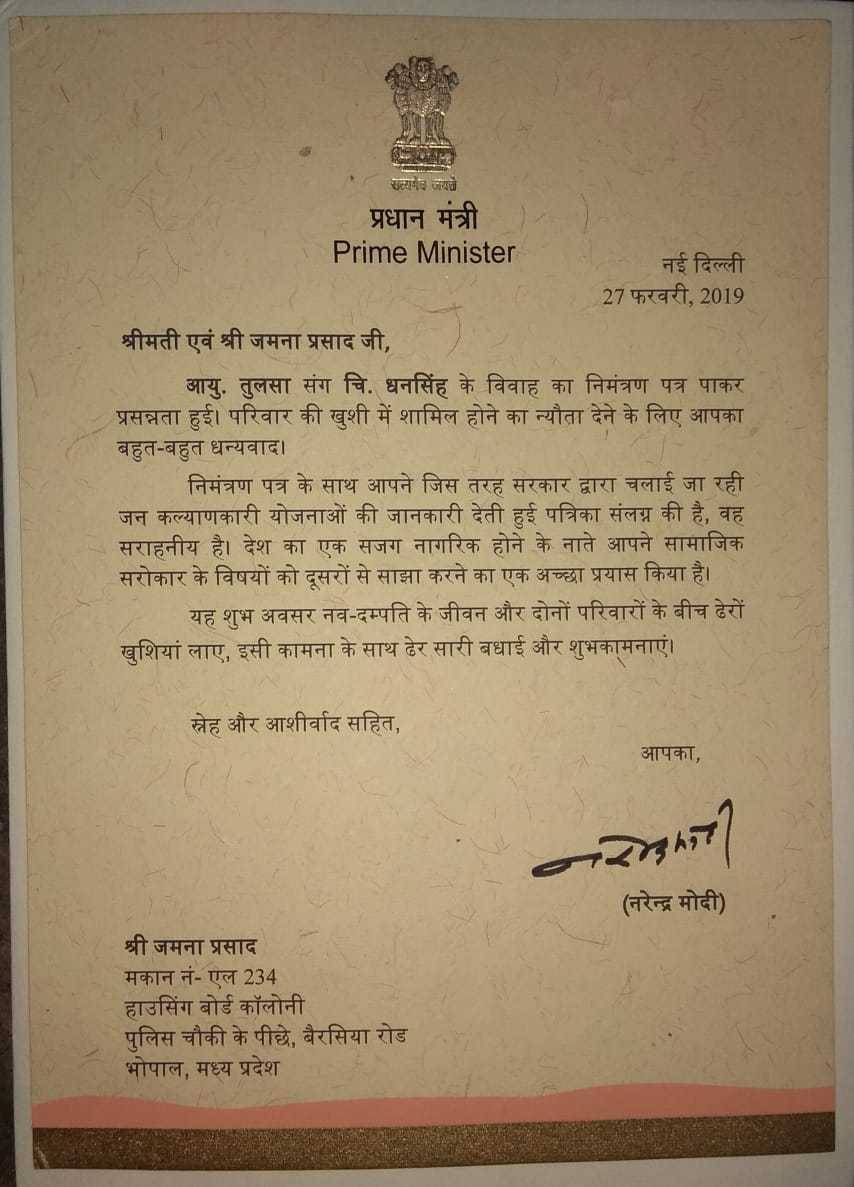 सत्यमेव जयते
प्रधान मंत्री
Prime Minister
नई दिल्ली
27 फरवरी, 2019
श्रीमती एवं श्री जमना प्रसाद जी,
आयु. तुलसा संग चि. धनसिंह के विवाह का निमंत्रण पत्र पाकर
प्रसन्नता हुई। परिवार की खुशी में शामिल होने का न्यौता देने के लिए आपका
बहुत-बहुत धन्यवाद।
निमंत्रण पत्र के साथ आपने जिस तरह सरकार द्वारा चलाई जा रही
जन कल्याणकारी योजनाओं की जानकारी देती हुई पत्रिका संलग्न की है, वह
सराहनीय है। देश का एक सजग नागरिक होने के नाते आपने सामाजिक
सरोकार के विषयों को दूसरों से साझा करने का एक अच्छा प्रयास किया है।
यह शुभ अवसर नव-दम्पति के जीवन और दोनों परिवारों के बीच ढेरों
खुशियां लाए, इसी कामना के साथ ढेर सारी बधाई और शुभकामनाएं।
स्नेह और आशीर्वाद सहित,
आपका,
नरेन्द्र मोदी
(नरेन्द्र मोदी)
श्री जमना प्रसाद
मकान नं- एल 234
हाउसिंग बोर्ड कॉलोनी
पुलिस चौकी के पीछे, बैरसिया रोड
भोपाल, मध्य प्रदेश